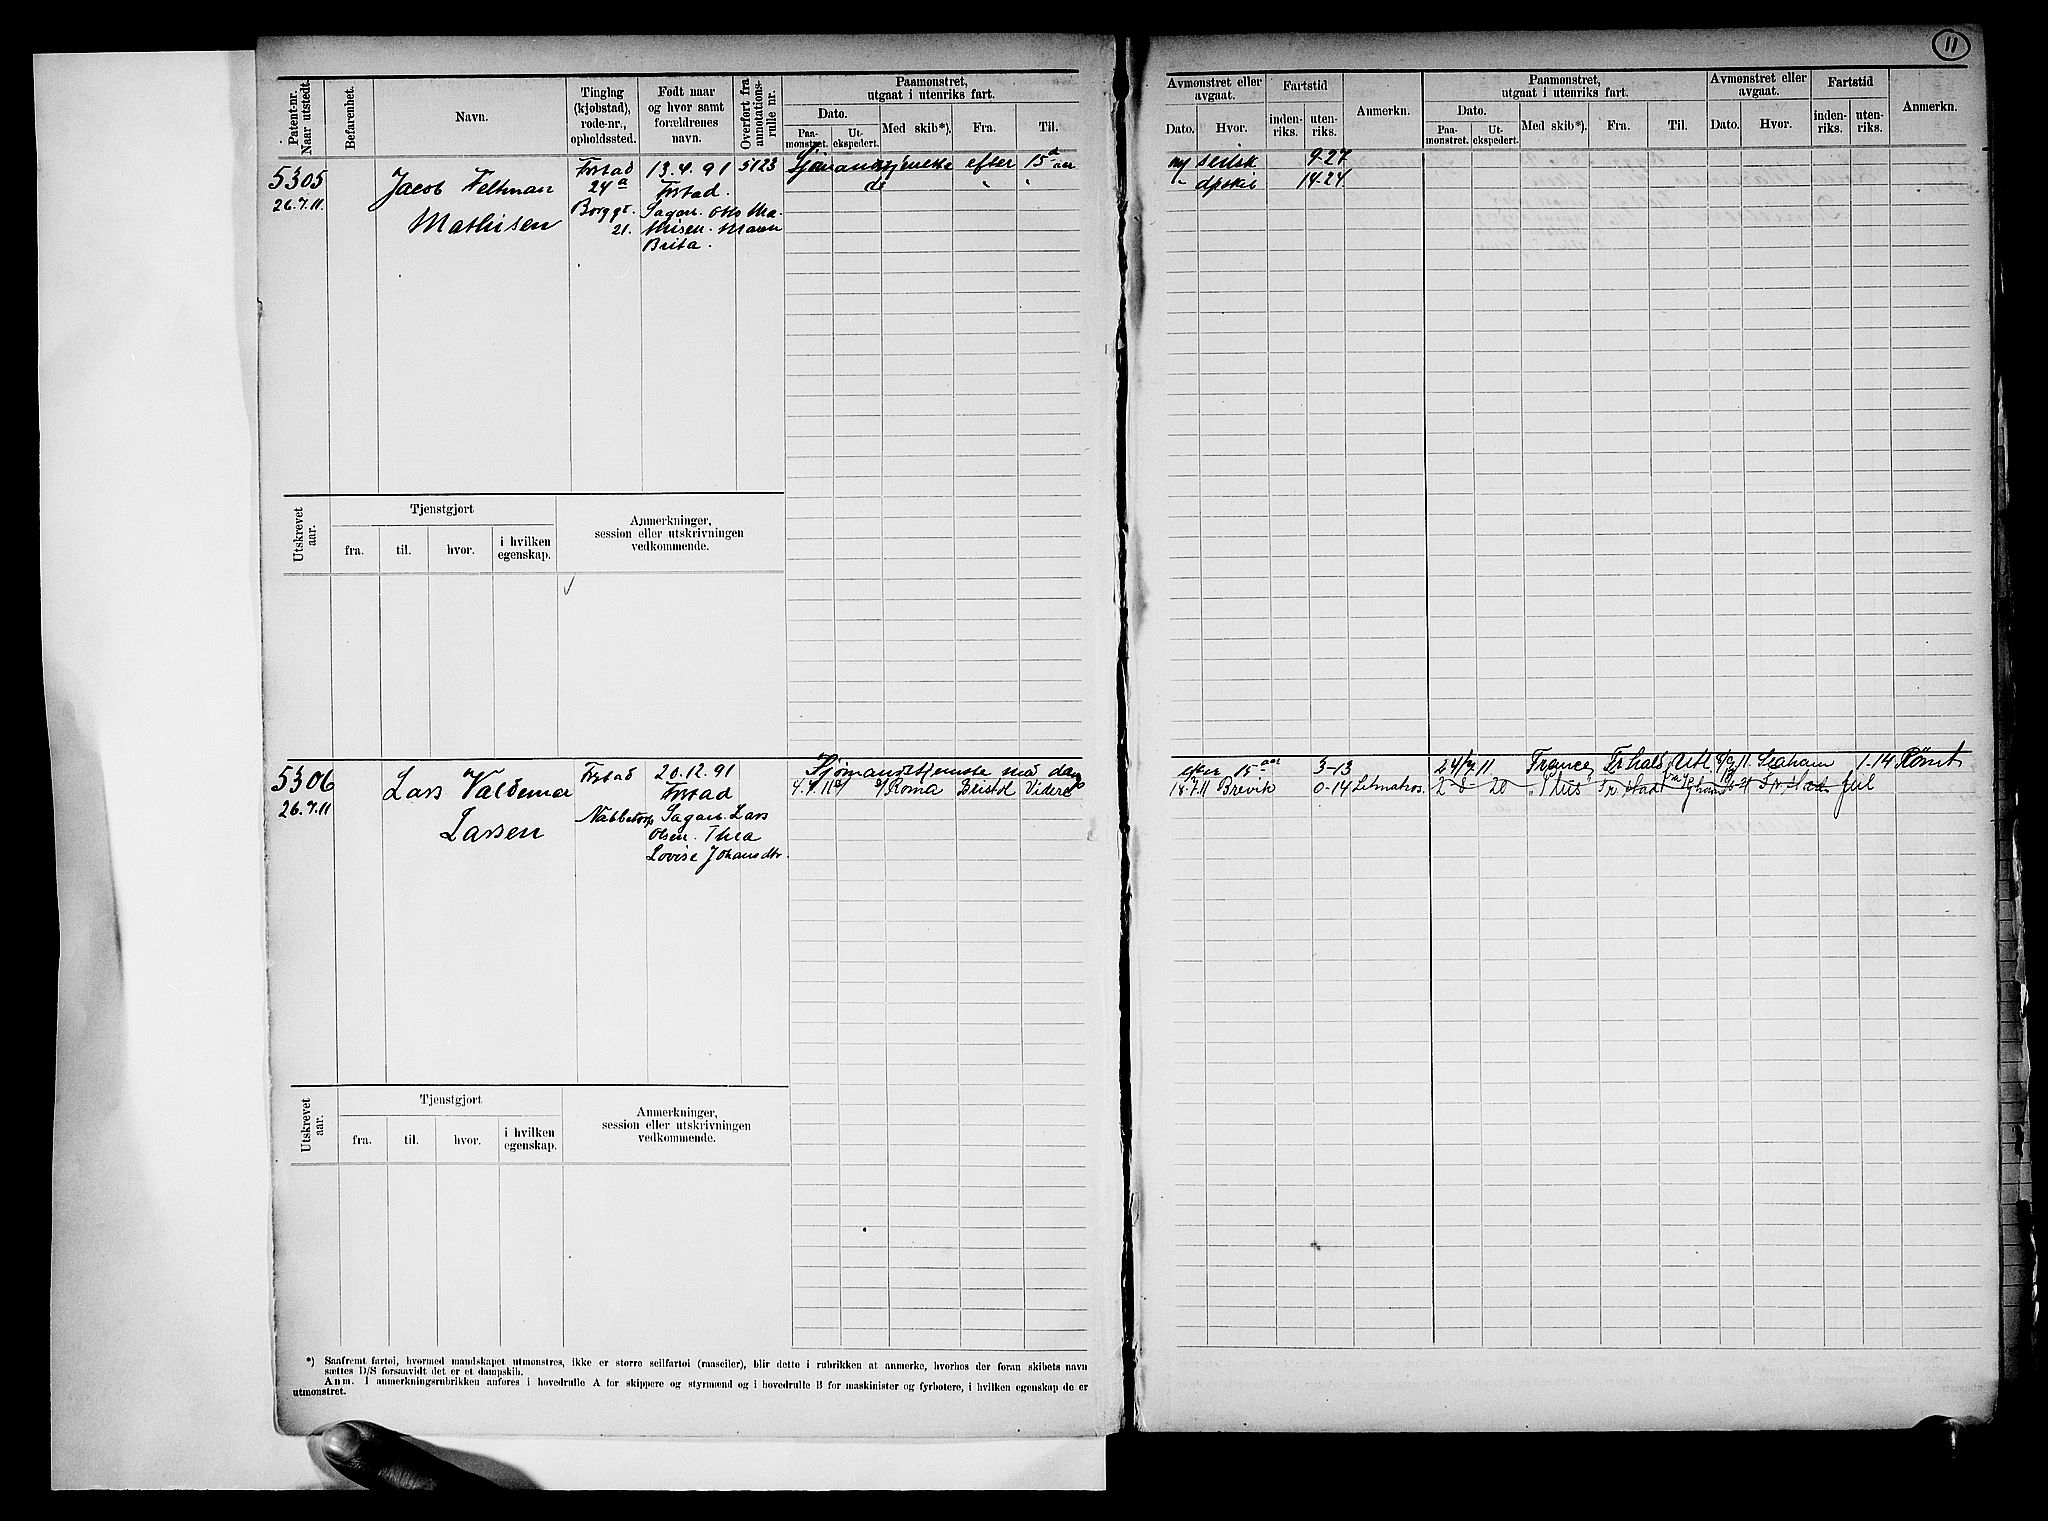 11
Patent-nr. Naar utstedt.
Befarenhet.
Navn.
Tinglag (kjøbstad), rode-nr., opholdssted.
Født naar og hvor samt forældrenes navn.
Overført fra annotations-rulle nr.
Paamønstret, utgaat i utenriks fart.
Dato.
Paa-mønstret.
Ut-ekspedert.
Med skib*).
Fra.
Til.
Avmønstret eller avgaat.
Dato.
Hvor.
Fartstid
inden-riks.
uten-riks.
Anmerkn.
Paamønstret, utgaat i utenriks fart.
Dato.
Paa-mønstret.
Ut-ekspedert.
Med skib*).
Fra.
Til.
Avmønstret eller avgaat.
Dato.
Hvor.
Fartstid
inden-riks.
uten-riks.
Anmerkn.
5305
26.7.11.
Jacob Veltman
Mathisen
Frstad
24a
Borggt.
21.
13.4.91
Frstad.
Sagan. Otto Ma-
thisen. Maren
Brita.
5123
Sjømandstjeneste efter 15 a aar
do " "
seilsk 9-27
" dpskib 14-24
Utskrevet aar.
Tjenstgjort
fra.
til.
hvor.
i hvilken egenskap.
Anmerkninger, session eller utskrivningen vedkommende.
5306
26.7.11
Lars Valdemar
Larsen
Frstad
Nabbetorp
20.12.91
Frstad
Sagan. Lars
Olsen. Thea
Lovise Johansdtr.
Sjømandstjeneste med damp
Roma Bristol Videre
efter 15 aar 3-13
18.7.11 Brevik 0-14 Letmatros.
24/7 11 France Frhald 11 Seaham 1-14 Rømt
2-8-20 Frstad
Utskrevet aar.
Tjenstgjort
fra.
til.
hvor.
i hvilken egenskap.
Anmerkninger, session eller utskrivningen vedkommende.
*) Saafremt fartøi, hvormed mandskapet utmønstres, ikke er større seilfartøi (raaseiler), blir dette i rubrikken at anmerke, hvorhos der foran skibets navn
sættes D/S forsaavidt det er et dampskib.
Anm. I anmerkningsrubrikken anføres i hovedrulle A for skippere og styrmænd og i hovedrulle B for maskinister og fyrbøtere, i hvilken egenskap de er
utmønstret.